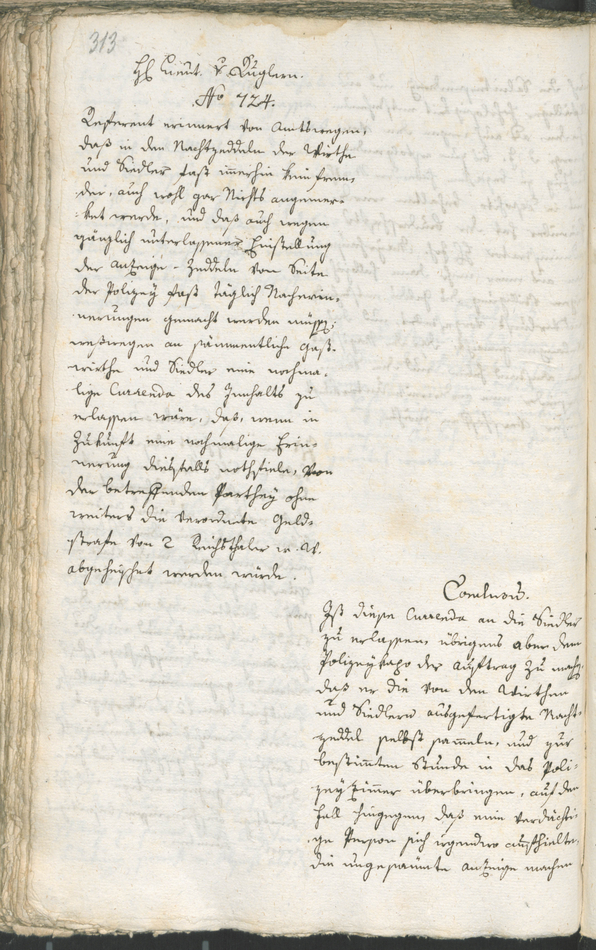 313
H. Lieut. v. Kuglern.
No 724.
Referent erinnert von Amtswegen,
daß in den Nachtzeddeln der Wirthe
und Siedler fast immerhin kein frem-
der, auch wohl gar Nichts angemer-
ket werde, und daß auch wegen
gänzlich unterlassener Einstellung
der Anzeige-Zeddeln von Seite
der Polizey fast täglich Nacherin-
nerungen gemacht werden müsse;
weßwegen an sämmentliche Gast-
wirthe und Siedler eine nochma-
lige Currenda des Innhalts zu
erlassen wäre, daß, wenn in
Zukunft eine nochmalige Erin-
nerung diesfalls nothfiele, von
der betreffenden Parthey ohne
weiters die verordnete Geld-
strafe von 2 Reichsthaler w. W.
abgeheischet werden würde.
Conclusis.
Ist diese Currenda an die Siedler
zu erlassen, übrigens aber dem
Polizeykapo der Auftrag zu mach,
daß er die von den Wirthen
und Siedlern ausgefertigte Nacht-
zeddel selbst sameln, und zur
bestimten Stunde in das Poli-
zeyzimer überbringen, auf den
Fall hingegen, daß eine verdächti-
ge Person sich irgendwo aufhielte,
die ungesäumte Anzeige machen